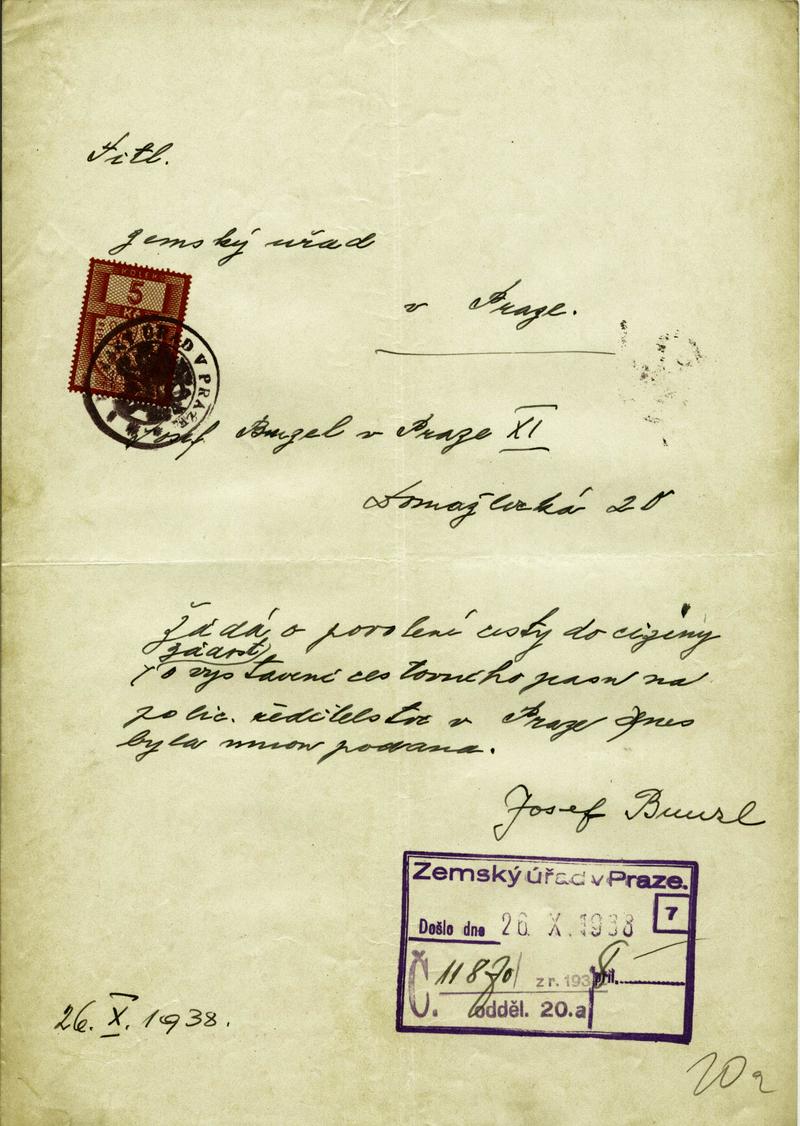 Titl.
Zemský úřad
v Praze.
KOLEK
5
Kč
V PRAZE
Josef Bunzl v Praze XI
Domažlická 20
žádá o povolení cesty do ciziny
žádost
o vystavení cestovního pasu na
polic. ředitelství v Praze dnes
byla mnou podána.
Josef Bunzl
Zemský úřad v Praze.
Došlo dne 26 X. 1938 7
Č. 11870/ z r. 193 příl.
odděl. 20.a
26. X. 1938.
20a